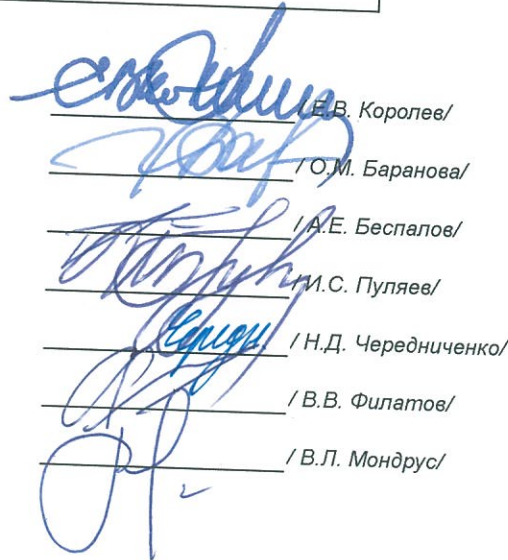 / Е.В. Королев/
/ О.М. Баранова/
/ А.Е. Беспалов/
/ И.С. Пуляев/
/ Н.Д. Чередниченко/
/ В.В. Филатов/
/ В.Л. Мондрус/